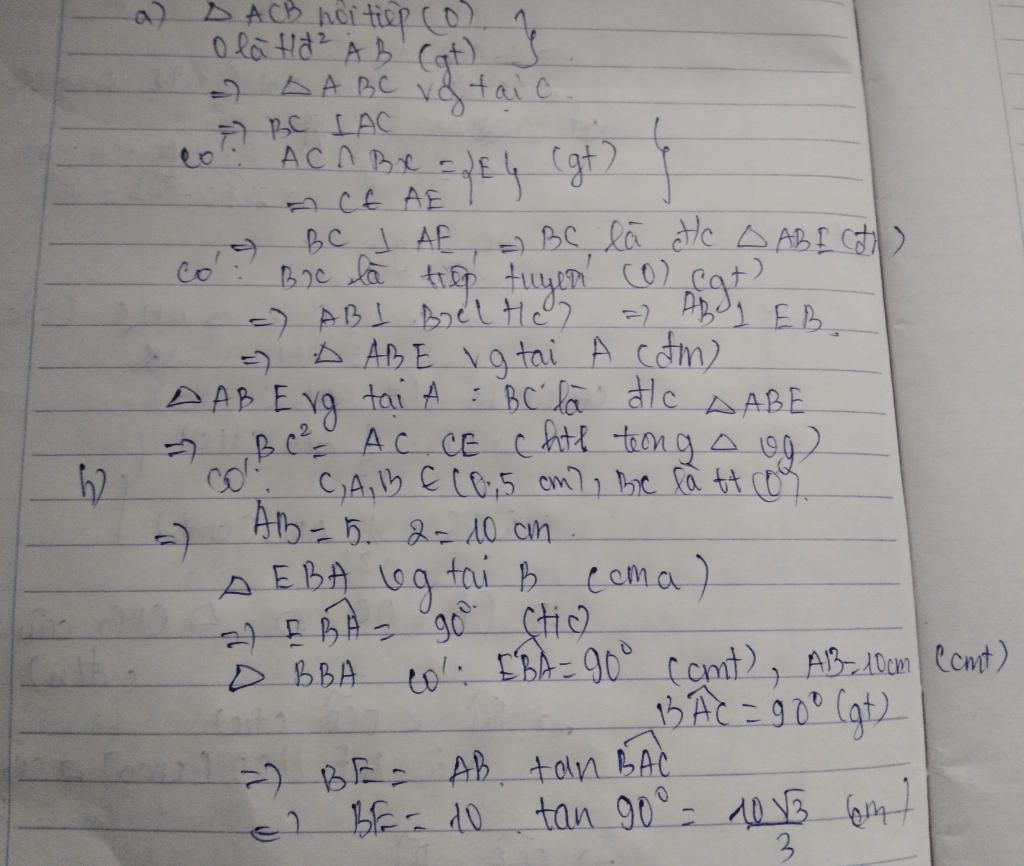 a) Δ ACB nội tiếp (O) }
O là tđ² AB (gt)
=> Δ ABC vg tại C.
=> BC ⊥ AC
có: AC ∩ Bx = {E} (gt) }
=> C ∈ AE
=> BC ⊥ AE, => BC là đ/c Δ ABE (đn)
có: Bx là tiếp tuyến (O) (gt)
=> AB ⊥ Bx (t/c) => AB ⊥ EB.
=> Δ ABE vg tại A (đm)
Δ ABE vg tại A : BC là đ/c Δ ABE
=> BC² = AC. CE (htl trong Δ vg)
b) có: C, A, B ∈ (O, 5 cm), Bx là tt (O).
=> AB = 5. 2 = 10 cm.
Δ EBA vg tại B (cma)
=> EBA = 90° (t/c)
Δ BBA có: EBA = 90° (cmt), AB = 10cm (cmt)
BAC = 90° (gt)
=> BE = AB. tan BAC
=> BE = 10. tan 90° = 10√3/3 cm